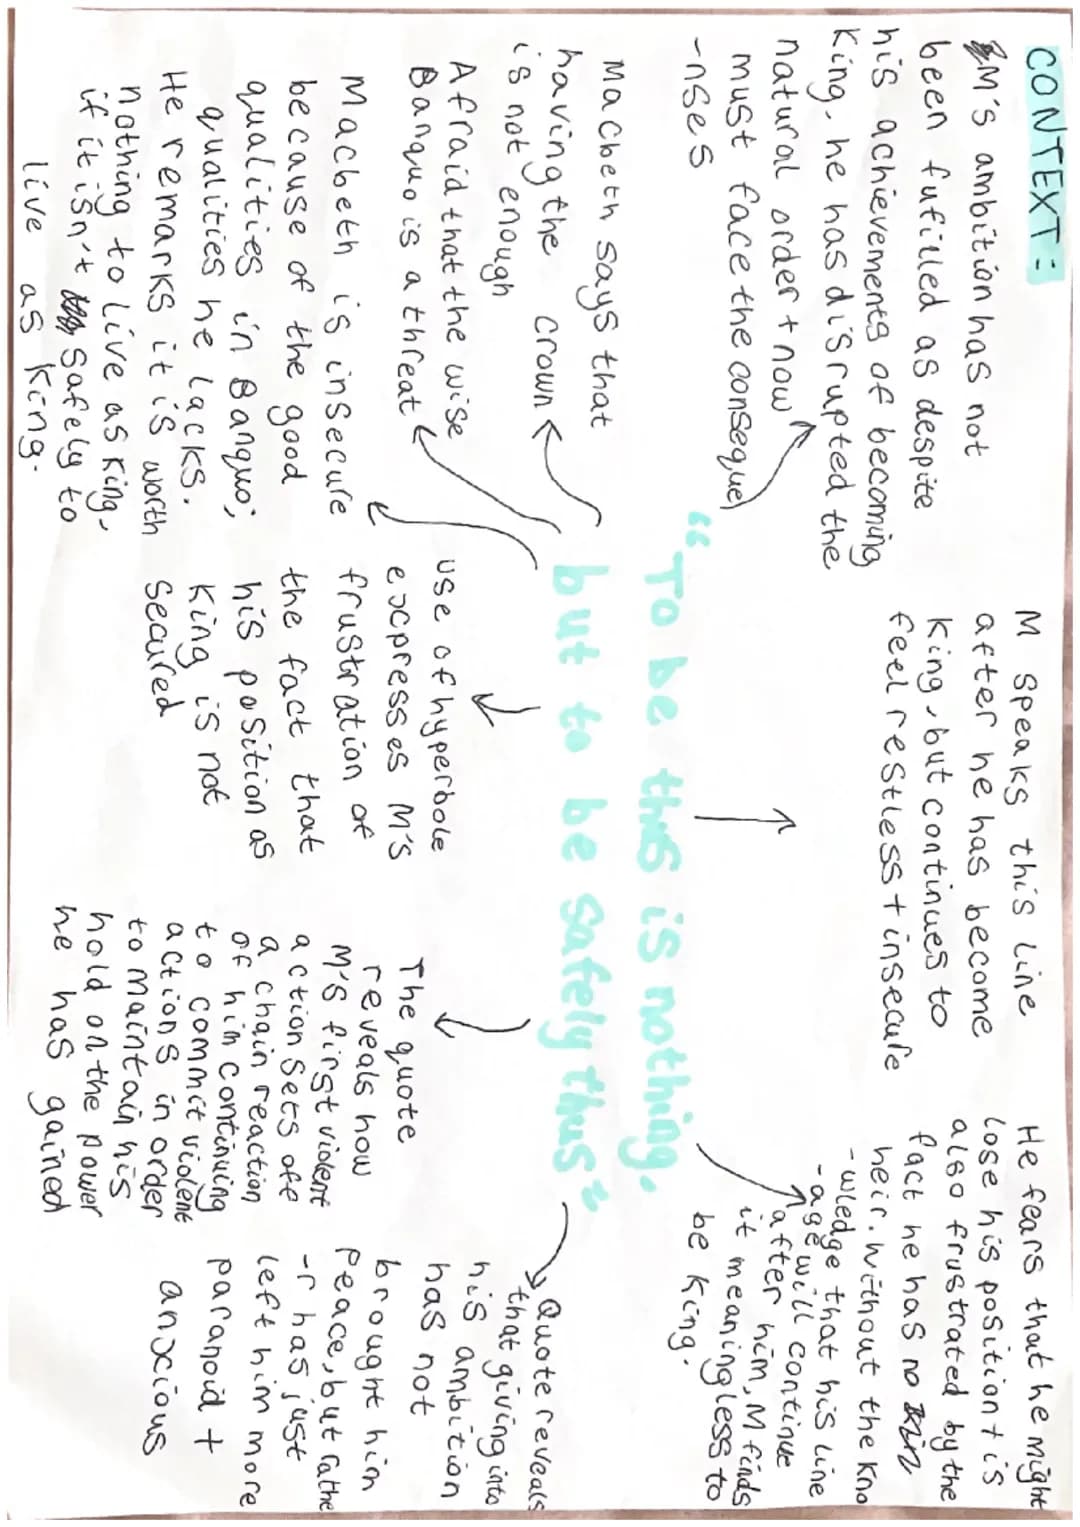 CONTEXT:
M's ambition has not
been fufilled as despite
his achievements of becoming
King, he has disrupted the
natural order + now
must face the conseque
-nses
M speaks this line
after he has become
King, but continues to
feel restless + insecure
He fears that he might
lose his position + is
also frustrated by the
fact he has no
heir. Without the kno
-wledge that his line
-age will continue
after him, M finds
it meaningless to
be King.
"To be thus is nothing,
but to be safely thus"
Macbeth says that
having the crown
is not enough
Afraid that the wise
Banquo is a threat
Macbeth is insecure
because of the good
qualities in Banquo;
qualities he lacks.
He remarks it is worth
nothing to live as King,
if it isn't safely to
live as King.
use of hyperbole
expresses M's
frustration of
the fact that
his position as
King is not
secured
The quote
reveals how
M's first violent
action sets off
a chain reaction
of him continuing
to commit violent
actions in order
to maintain his
hold on the power
he has gained
Quote reveals
that giving into
his ambition
has not
brought him
peace, but rathe
-r has just
left him more
paranoid +
anxious